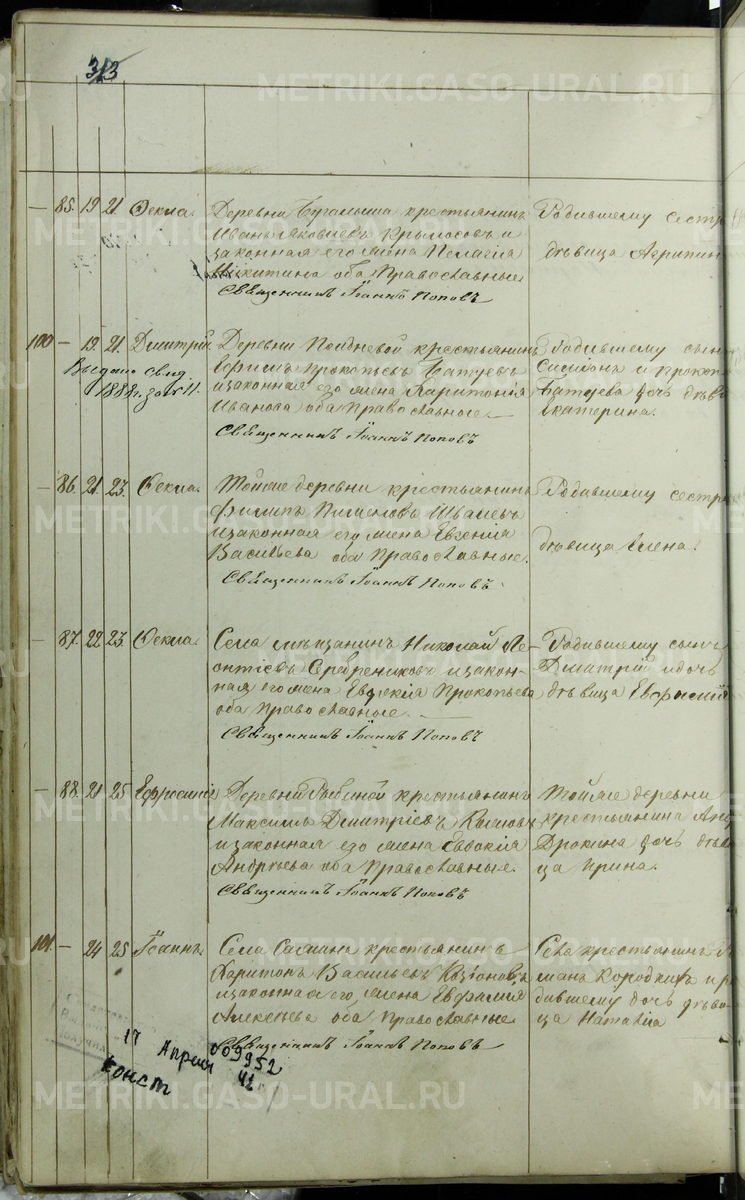 313
METRIKI.GASO-URAL.RU
— 85. 19 21. Фекла. Деревни крестьянинъ Родившему сестра
Иванъ Яковлевъ Крылосовъ и дѣвица Агрипин
законная его жена Пелагія
Никитина оба Православные
Священникъ Іоаннъ Поповъ
100 — 19 21. Дмитрій Деревни Поздневой крестьянинъ Родившему сынъ
Прокопьевъ Батуевъ Симеонъ и Прокоп
Выдано свид. и законная его жена Харитонія Батуева дочь дѣви
1888 г. за № 11. Иванова оба Православные Екатерина.
Священникъ Іоаннъ Поповъ
— 86. 21. 23. Фекла. Тойже деревни крестьянинъ Родившему сестра
Филипъ Пименовъ Швалевъ
и законная его жена Евгенія дѣвица Елена.
Васильева оба Православные.
Священникъ Іоаннъ Поповъ
— 87. 22 23. Фекла. Села мѣщанинъ Николай Ле- Родившему сынъ
онтіевъ Серебрениковъ и закон- Дмитрій и дочь
ная его жена Евдокія Прокопьева дѣвица Евфимія
оба Православные.
Священникъ Іоаннъ Поповъ
— 88. 21 25 Ефросинія Деревни Рыбиной крестьянинъ Тойже деревни
Максимъ Дмитріевъ крестьянина Анд
и законная его жена Евдокія Дрокина дочь дѣви
Андреева оба Православные. ца Ирина.
Священникъ Іоаннъ Поповъ
101. — 24 25 Іоаннъ. Села Сажина крестьянинъ Села крестьянинъ
Харитонъ Васильевъ манъ Кородкинъ и ро
и законная его жена Евфимия дившему дочь дѣви
Алексѣева оба Православные ца Наталія
Священникъ Іоаннъ Поповъ
17 Апреля 009952
конст 42
METRIKI.GASO-URAL.RU